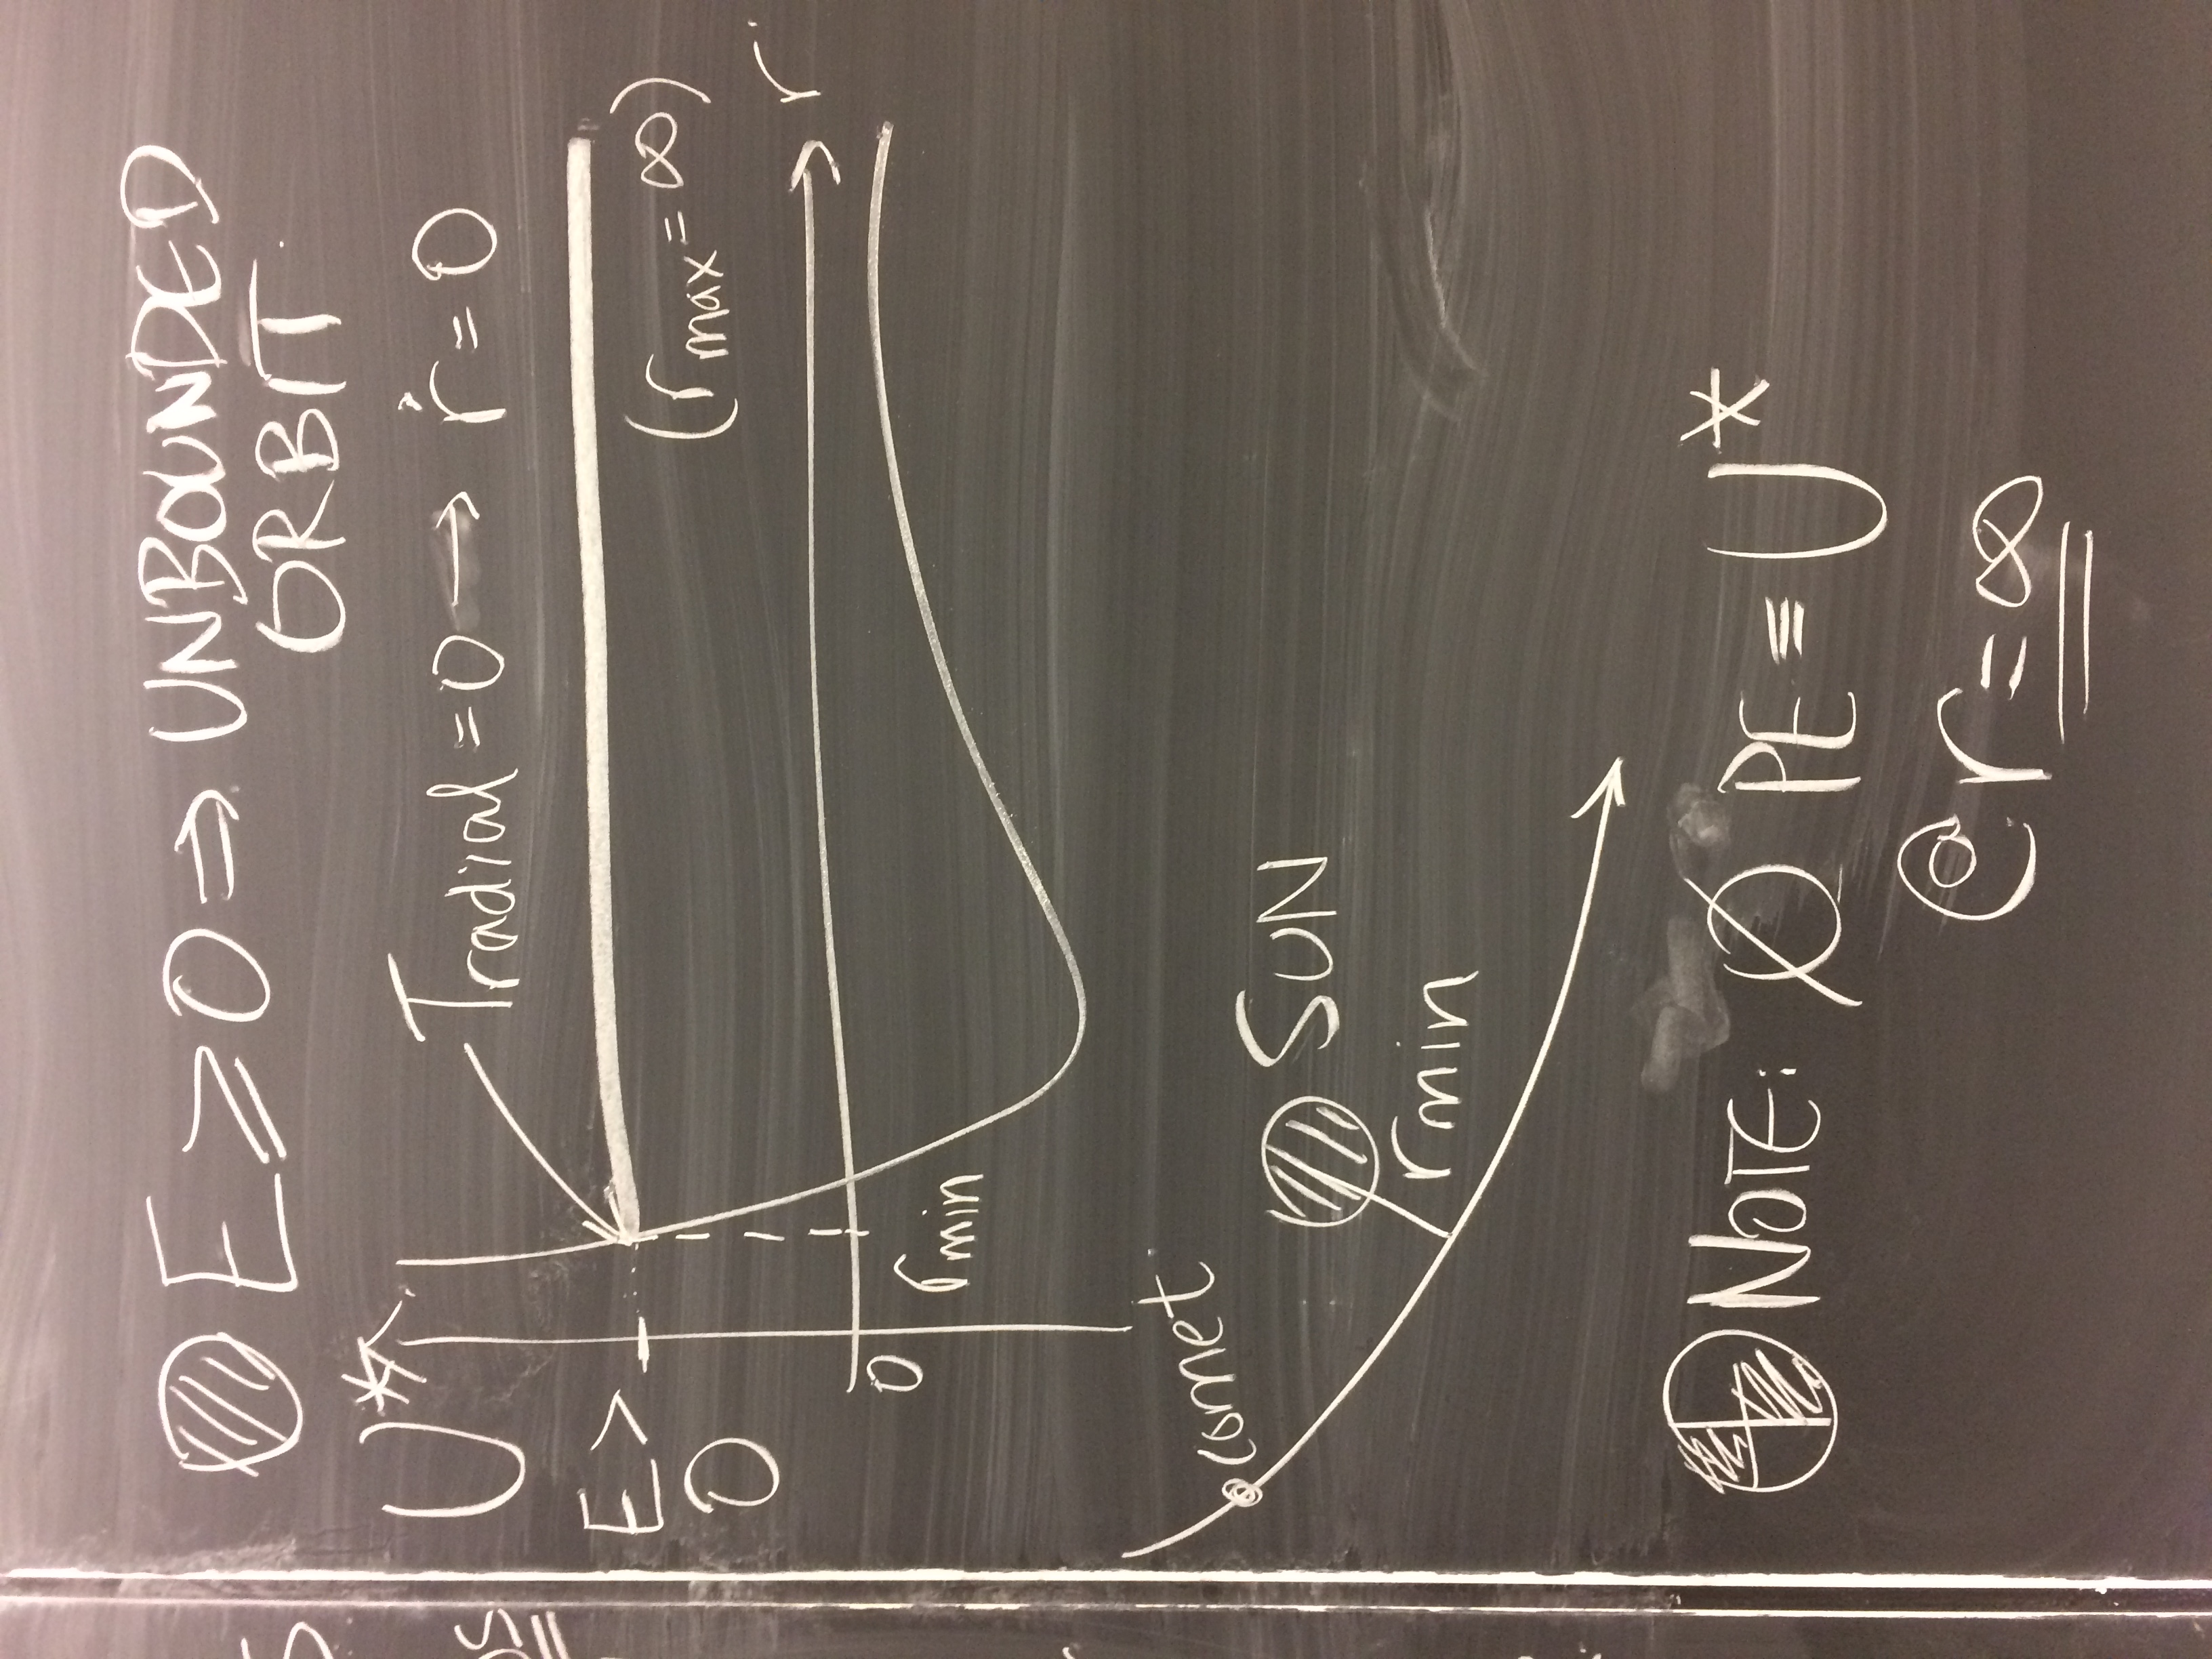 E ≥ 0 ⇒ UNBOUNDED
ORBIT
U*
Tradial = 0 → ṙ = 0
E >
0
(rmax = ∞)
r
0
rmin
comet
SUN
rmin
NOTE: Ø PE ≡ U*
@ r = ∞